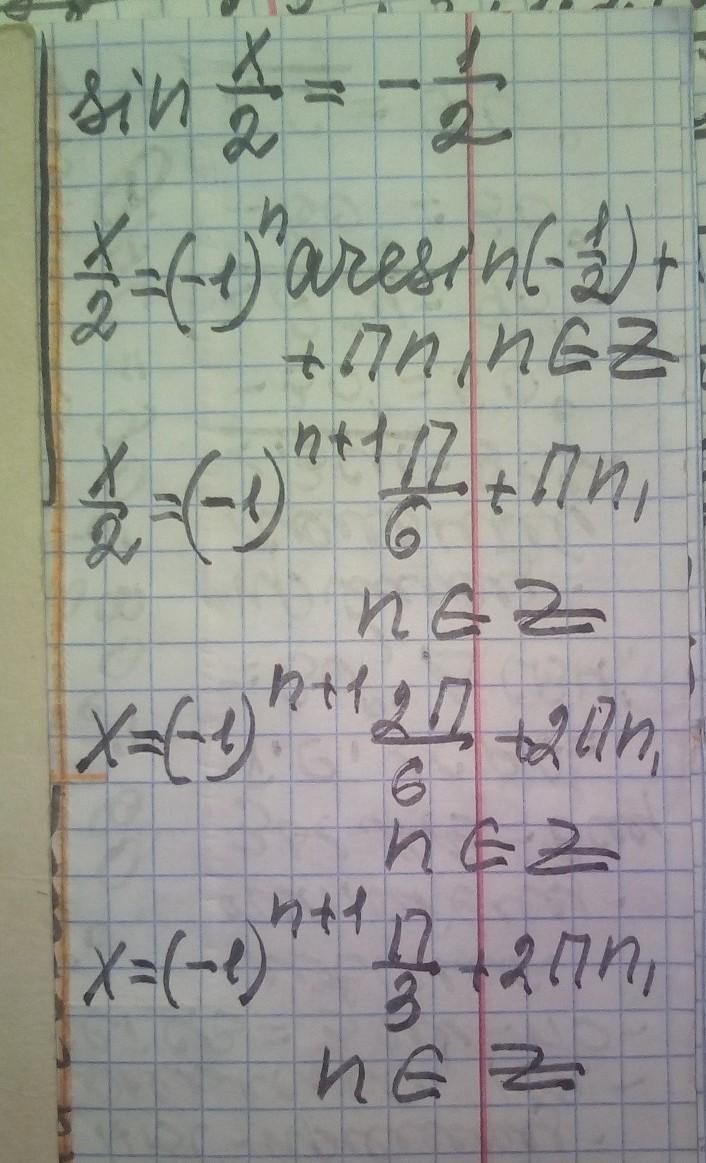 sin x/2 = - 1/2
x/2 = (-1)^n arcsin(-1/2) +
+ πn, n ∈ Z
x/2 = (-1)^(n+1) π/6 + πn,
n ∈ Z
x = (-1)^(n+1) 2π/6 + 2πn,
n ∈ Z
x = (-1)^(n+1) π/3 + 2πn,
n ∈ Z